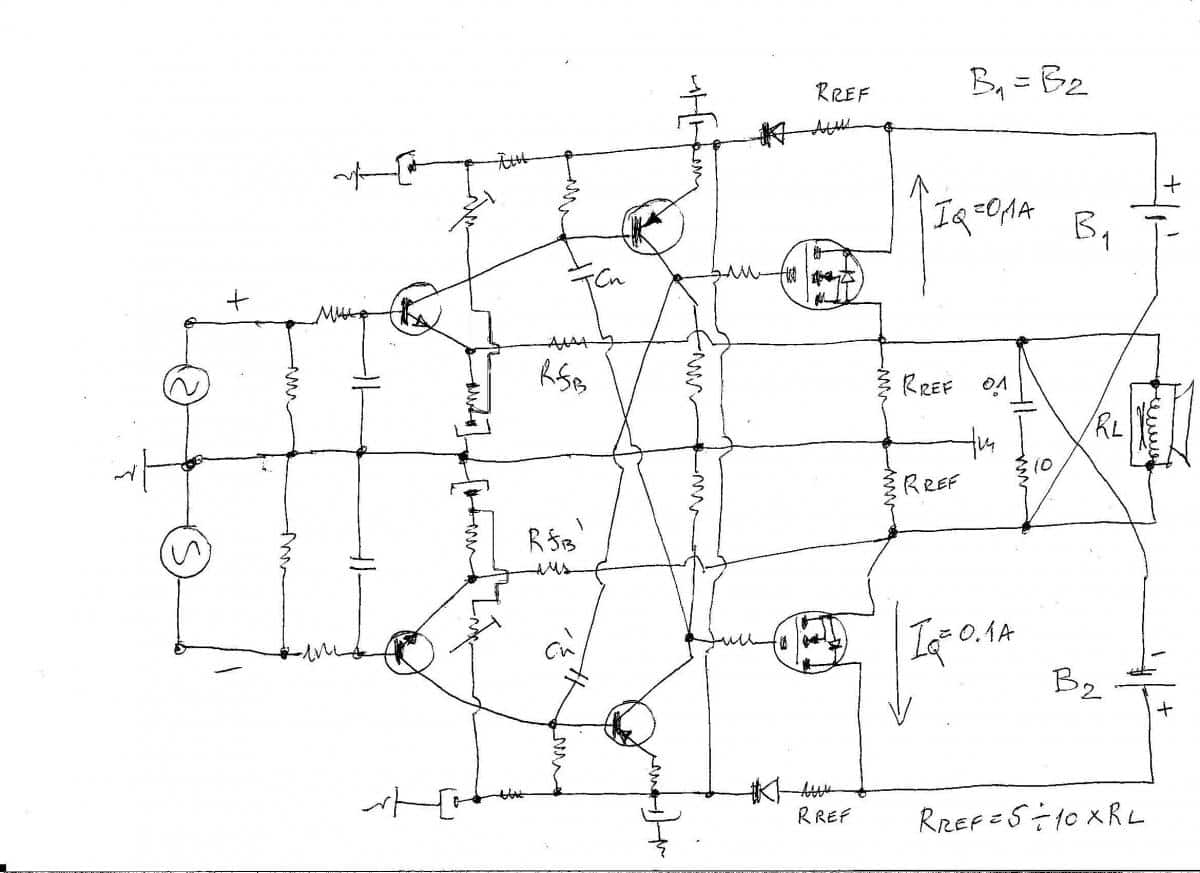 RREF
B1 = B2
+
IQ=0,1A
B1
-
Cn
+
RfB
RREF
0.1
RL
RREF
10
RfB'
Cn'
IQ=0.1A
-
B2
-
+
RREF
RREF=5÷10 x RL